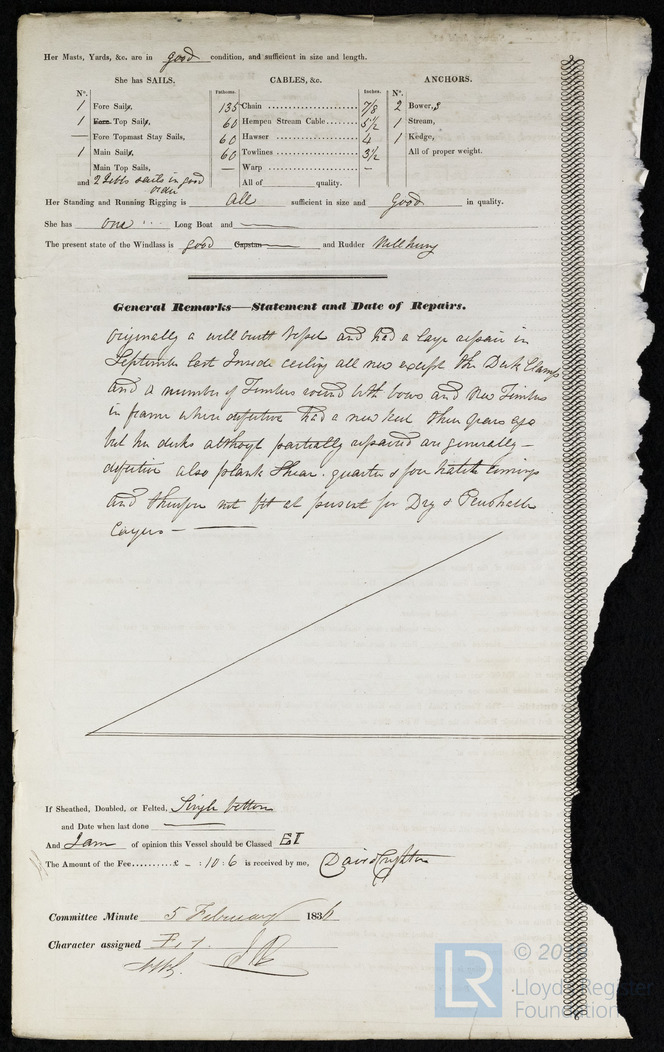 Her Masts, Yards, &c. are in good condition, and sufficient in size and length.
She has SAILS. CABLES, &c. ANCHORS.
N°. Fathoms. Inches. N°.
1 Fore Sails, 135 Chain 7/8 2 Bower,s
1 Fore Top Sails, 60 Hempen Stream Cable 5 1/2 1 Stream,
— Fore Topmast Stay Sails, 60 Hawser 4 1 Kedge,
1 Main Sails, 60 Towlines 3 1/2 All of proper weight.
Main Top Sails, — Warp —
and 2 Jibbs sails in good order All of quality.
Her Standing and Running Rigging is All sufficient in size and Good in quality.
She has one Long Boat and
The present state of the Windlass is good Capstan and Rudder Well hung
General Remarks—Statement and Date of Repairs.
Originally a well built Vessel and had a large repair in
September last Inside ceiling all new except the Deck Clamps
and a number of Timbers round both bows and New Timbers
in frame where defective had a new keel three years ago
but her decks although partially repaired are generally —
defective also plank Shear. quarter & fore hatch comings
and therefore not fit at present for Dry & Perishable
Cargoes —
If Sheathed, Doubled, or Felted, Single bottom
and Date when last done
And I am of opinion this Vessel should be Classed E1
The Amount of the Fee..........£ – : 10 : 6 is received by me, David Crighton
Committee Minute 5 February 1836
Character assigned E. 1.
LR
Lloyd's Register
Foundation